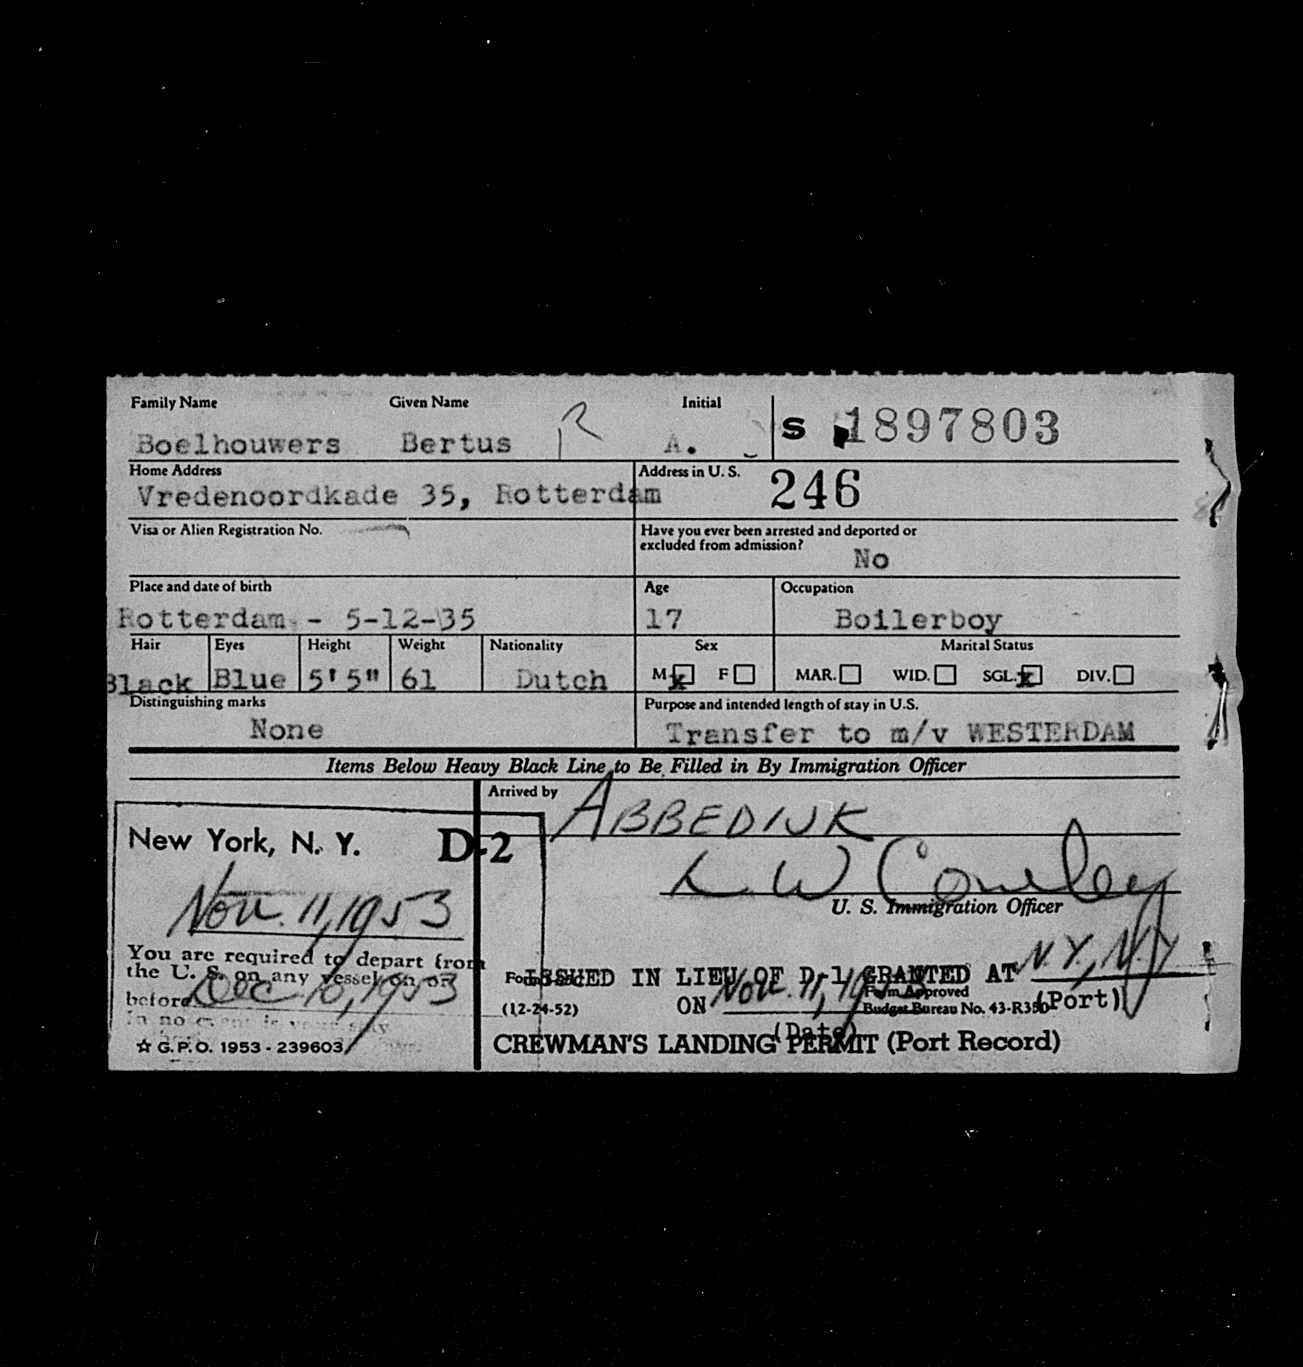 Family Name Given Name Initial
Boelhouwers Bertus R A. S 1897803
Home Address Address in U. S.
Vredenoordkade 35, Rotterdam 246
Visa or Alien Registration No. Have you ever been arrested and deported or
excluded from admission?
No
Place and date of birth Age Occupation
Rotterdam - 5-12-35 17 Boilerboy
Hair Eyes Height Weight Nationality Sex Marital Status
Black Blue 5'5" 61 Dutch M x F MAR. WID. SGL. x DIV.
Distinguishing marks Purpose and intended length of stay in U.S.
None Transfer to m/v WESTERDAM
Items Below Heavy Black Line to Be Filled in By Immigration Officer
Arrived by ABBEDIJK
New York, N. Y. D-2
L W Cowley
Nov. 11, 1953
U. S. Immigration Officer
You are required to depart from
the U. S. on any vessel on or
before Dec 10, 1953
In no event is your stay
☆ G.P.O. 1953 - 239603
ISSUED IN LIEU OF D-1 GRANTED AT N.Y., N.Y
(Port)
ON Nov. 11, 19
(Date)
Form Approved
(12-24-52) Budget Bureau No. 43-R350
CREWMAN'S LANDING PERMIT (Port Record)